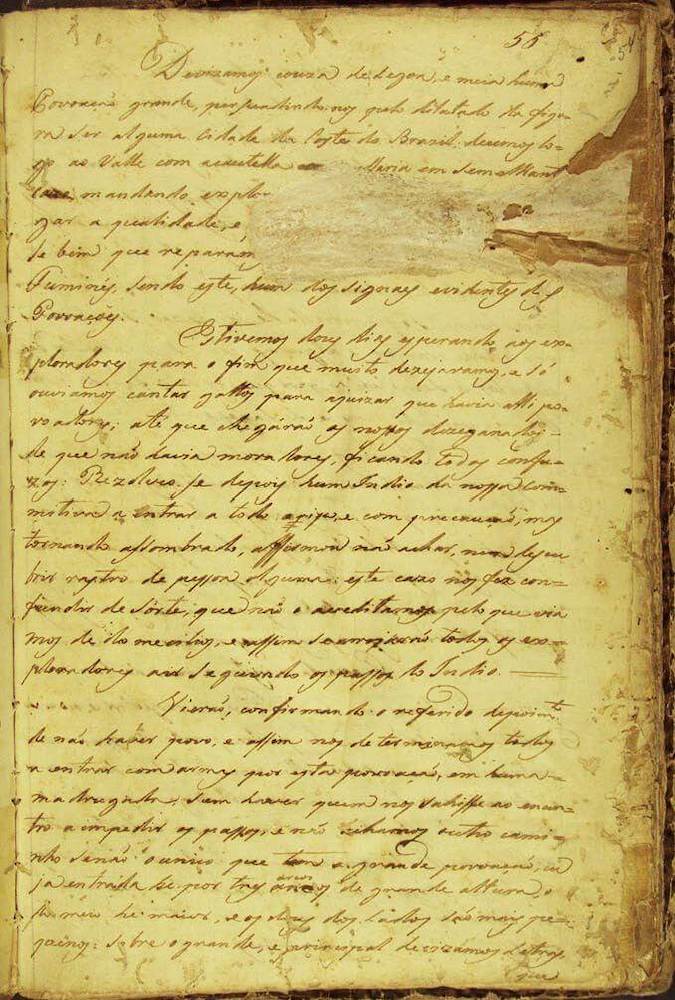 56
Devizamos couza de legoa, e meia huma
Povoação grande, persuadindonos pelo dilatado da figu-
ra ser alguma Cidade da Costa do Brazil: decemos lo-
go ao Valle com acautella          daria em semelhant
cazo, mandando explor
gar a qualidade, e
se bem que reparám
Fumines, sendo este, hum dos signaes evidentes das
Povoações.
Estivemos dous dias esperando aos ex-
ploradores para o fim que muito dezejavamos, e só
ouviamos cantar gallos para ajuizar que havia alli po-
voadores; até que chegárão os nossos dezeganados
de que não havia moradores, ficando todos confu-
zos: Rezolveo-se depois hum Indio da nossa com-
mitiva a entrar a todo arisco, e com precaução; mas
tornando assombrado, affirmou não achar, nem descu
brir rastro de pessoa alguma: este cazo nos fez con-
fundir de sorte, que não o acreditamos pelo que via
mos de domecilios, e assim se arrojárão todos os ex-
ploradores a ir seguindo os passos do Indio.
Vierão, confirmando o referido depoim.to
de não haver povo, e assim nos determinamos todos
a entrar com armas por esta povoação, em huma
madrugada, sem haver quem nos sahisse ao encon-
tro a impedir os passos, e não achamos outro cami-
nho senão o unico que tem a grande povoação, cu
ja entrada he por tres arcos de grande altura, o
do meio he maior, e os dous dos lados são mais pe-
quenos: sobre o grande, e principal devizamos letras,
que